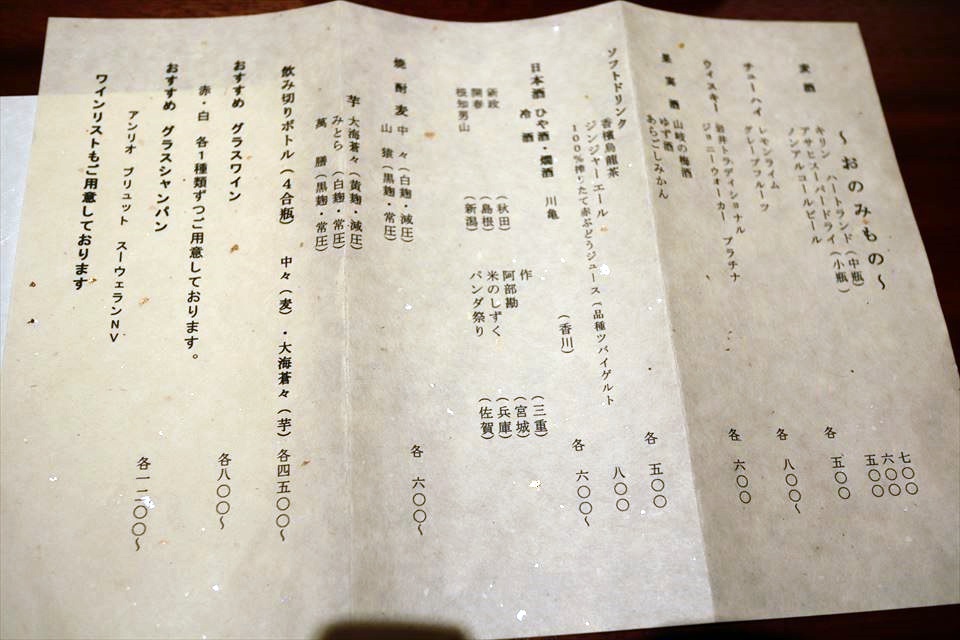 ～おのみもの～
麦酒 キリン ハートランド (中瓶) 七〇〇
アサヒスーパードライ (小瓶) 六〇〇
ノンアルコールビール 五〇〇
チューハイ レモンライム 各 五〇〇
グレープフルーツ
ウイスキー 岩井トラディショナル 各 八〇〇～
ジョニーウォーカー プラチナ
果実酒 山崎の梅酒 各 六〇〇
ゆず酒
あらごしみかん
ソフトドリンク 香檳烏龍茶 各 五〇〇
ジンジャーエール
100%搾りたて赤ぶどうジュース (品種ツバイゲルト 八〇〇
日本酒 ひや酒・燗酒 川亀 (香川) 各 六〇〇～
冷酒
作 (三重)
新政 (秋田) 阿部勘 (宮城)
開春 (島根) 米のしずく (兵庫)
根知男山 (新潟) パンダ祭り (佐賀)
焼酎 麦 中々 (白麹・減圧) 各 六〇〇～
山猿 (黒麹・常圧)
芋 大海蒼々 (黄麹・減圧)
みとら (白麹・常圧)
萬膳 (黒麹・常圧)
飲み切りボトル (4合瓶) 中々(麦)・大海蒼々(芋) 各四五〇〇～
おすすめ グラスワイン
赤・白 各1種類ずつご用意しております。 各八〇〇～
おすすめ グラスシャンパン
アンリオ ブリュット スーウェランNV 各一二〇〇～
ワインリストもご用意しております